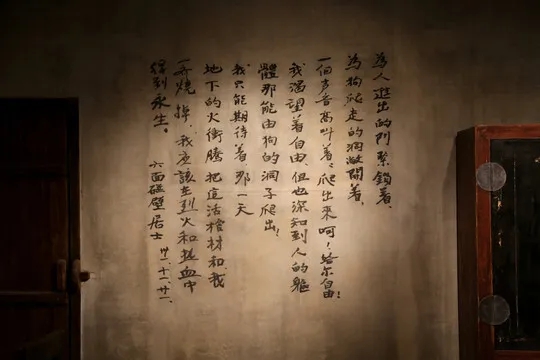 為人進出的门緊鎖着,
為狗爬走的洞敞開着,
一個声音高叫着:爬出來呵!給尔自由!
我渴望着自由,但也深知到人的軀
體那能由狗的洞子爬出!
我只能期待着,那一天
地下的火衝騰把這活棺材和我
一齊燒掉,我應該在烈火和热血中
得到永生。
六面碰壁居士 卅一.十一.廿一.